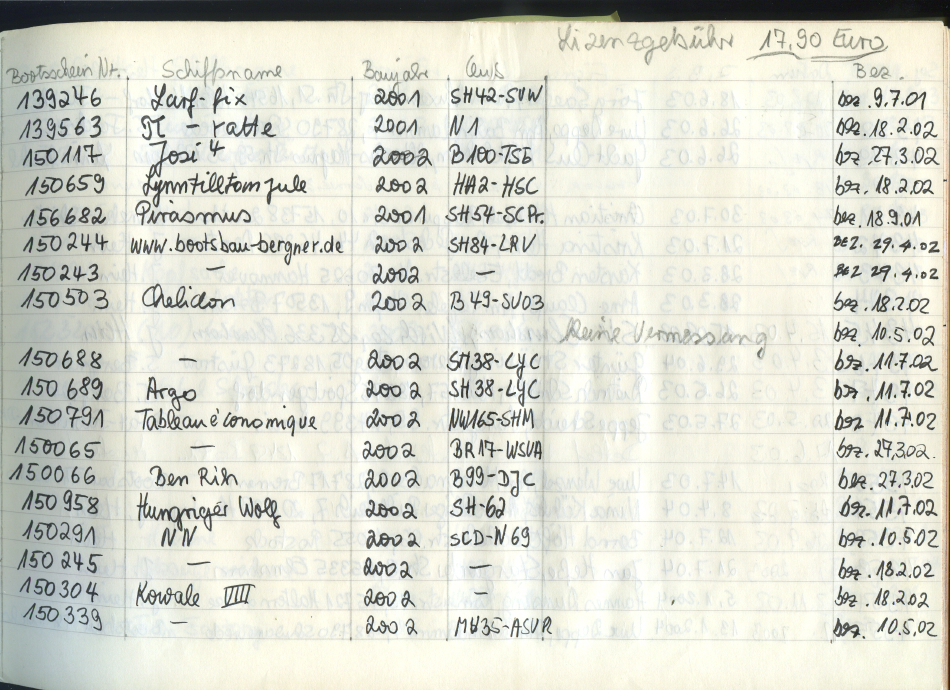 Lizenzgebühr 17,90 Euro
Bootsschein Nr. Schiffsname Baujahr Bez.
139246 Larf-fix 2001 SH42-SVW bez. 9.7.01
139563 π-ratte 2001 N1 bez. 18.2.02
150117 Josi 4 2002 B100-TSE bez. 27.3.02
150659 2002 HA2-HSC bez. 18.2.02
156682 Pirasmus 2001 SH54-SCPr. bez. 18.9.01
150244 www.bootsbau-bergner.de 2002 SH84-LRV BEZ. 29.4.02
150243 — 2002 — BEZ 29.4.02
150503 Chelidon 2002 B49-SV03 bez. 18.2.02
Keine Vermessung bez. 10.5.02
150688 — 2002 SH38-LYC bez. 11.7.02
150689 Argo 2002 SH38-LYC bez. 11.7.02
150791 Tableau économique 2002 NW165-SHM bez. 11.7.02
150065 — 2002 BR17-WSVA bez. 27.3.02.
150066 Ben Rih 2002 B99-DJC bez. 27.3.02
150958 Hungriger Wolf 2002 SH-62 bez. 11.7.02
150291 NN 2002 SCD-N69 bez. 10.5.02
150245 — 2002 — bez. 18.2.02
150304 Kowale VIII 2002 – bez. 18.2.02
150339 – 2002 MV35-ASVR bez. 10.5.02